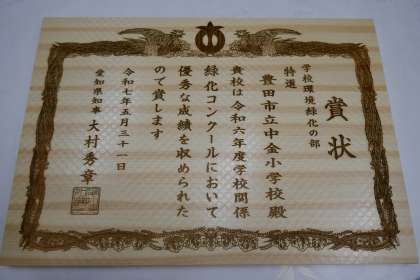 賞状
学校環境緑化の部
特選
豊田市立中金小学校殿
貴校は令和六年度学校関係
緑化コンクールにおいて
優秀な成績を収められた
ので賞します
令和七年五月三十一日
愛知県知事 大村秀章